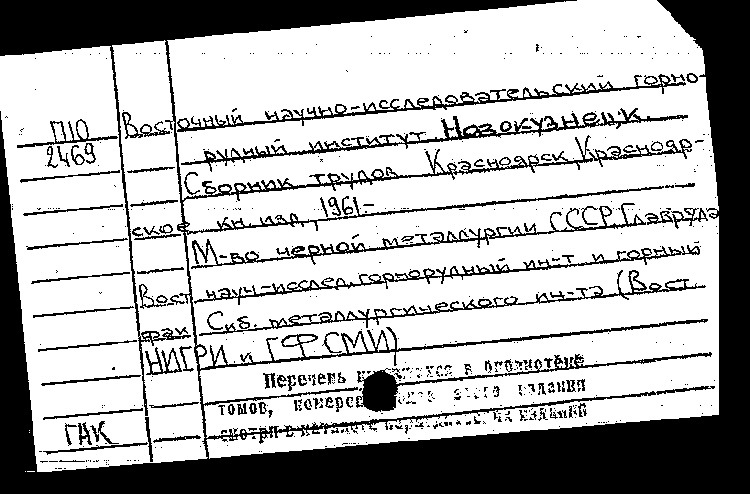 П10
2469
Восточный научно-исследовательский горно-
рудный институт Новокузнецк.
Сборник трудов Красноярск, Краснояр-
ское кн. изд., 1961.-
М-во черной металлургии СССР. Главруда
Вост. науч-исслед. горнорудный ин-т и горный
фак Сиб. металлургического ин-та (Вост.
НИГРИ и ГФ СМИ)
Перечень в библиотеке
томов, номеров этого издания
смотри в каталоге изданий
ГАК